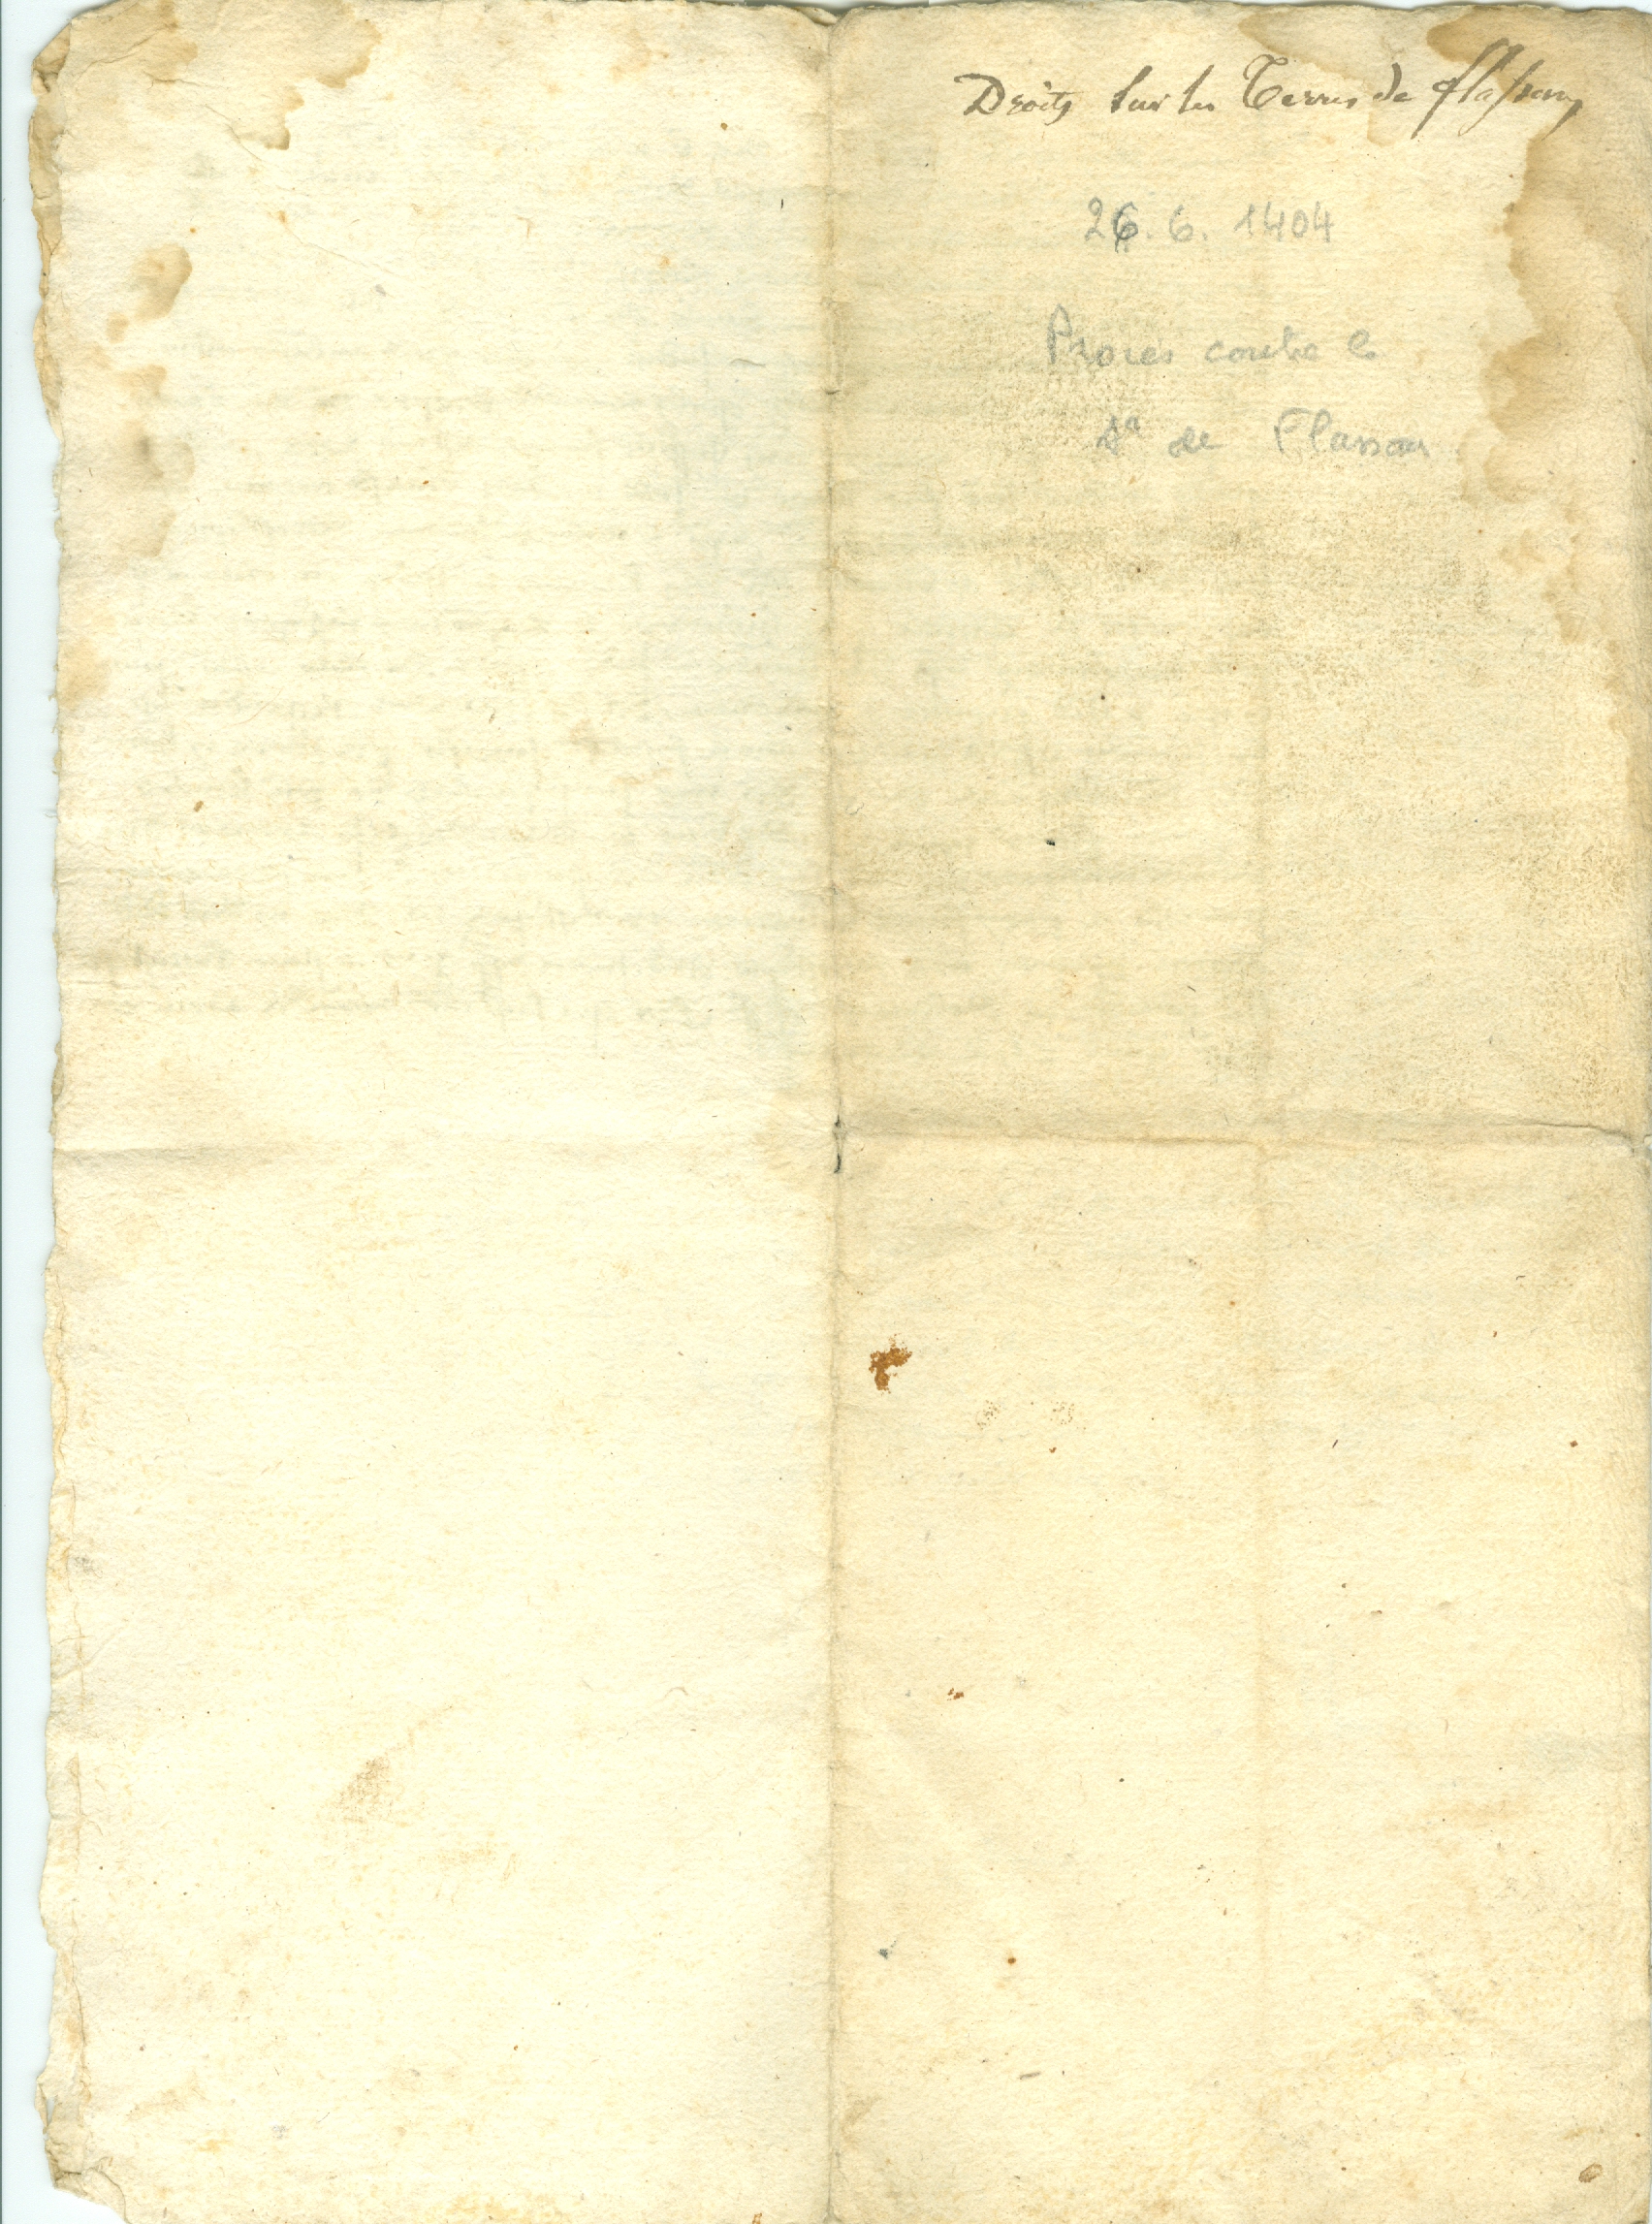 Droits sur les Terres de flassans
26. 6. 1404
Procès contre le
de Flassan